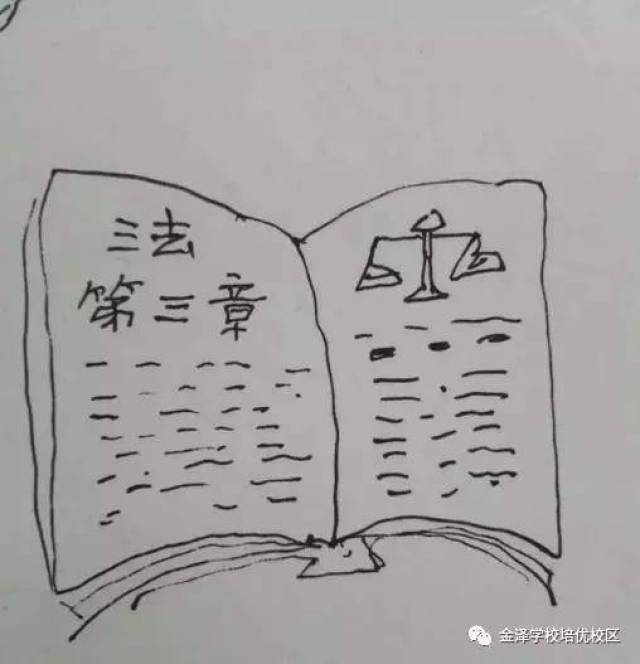 三法
第三章
金泽学校培优校区